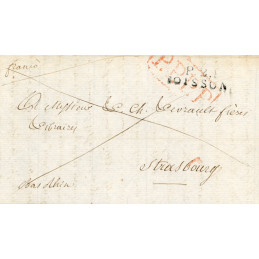 franco
P. 2.
OISSON
A Messieurs
Ch. Levrault frères
Libraires
Strasbourg
bas Rhin